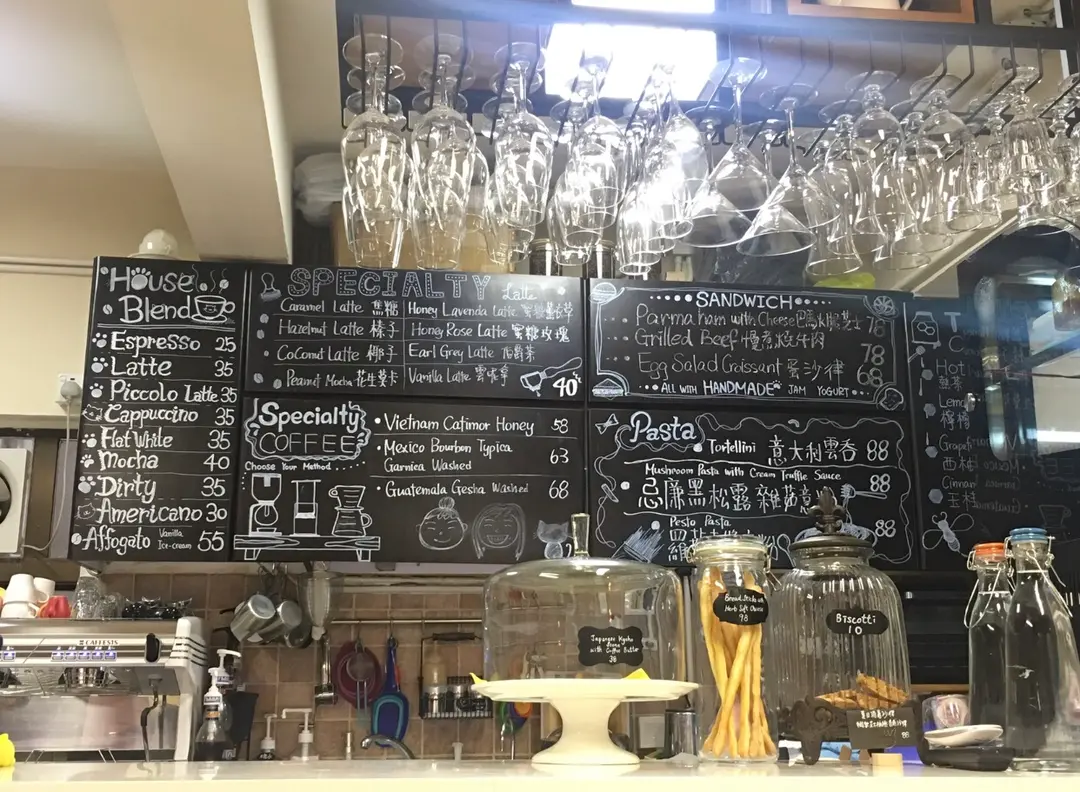 House
Blend
Espresso 25
Latte 35
Piccolo Latte 35
Cappuccino 35
Flat White 35
Mocha 40
Dirty 35
Americano 30
Affogato Vanilla Ice-cream 55
SPECIALTY Latte
Caramel Latte 焦糖
Hazelnut Latte 榛子
Coconut Latte 椰子
Peanut Mocha 花生莫卡
Honey Lavenda Latte
Honey Rose Latte 蜜糖玫瑰
Earl Grey Latte
Vanilla Latte
40
Specialty
COFFEE
Choose Your Method
Vietnam Catimor Honey 58
Mexico Bourbon Typica
Garnica Washed 63
Guatemala Gesha Washed 68
SANDWICH
Parma ham with Cheese 78
Grilled Beef 78
Egg Salad Croissant 68
ALL WITH HANDMADE JAM YOGURT
Pasta
Tortellini 意大利雲吞 88
Mushroom Pasta with Cream Truffle Sauce
忌廉黑松露雜菇意 88
Pesto Pasta
88
T
Hot
Lemo
檸檬
Grapefrui
西柚
Cinnam
CAFFESTS
Japanese Kyoho
with Coffee Butter
38
Bread Sticks with
Herb Soft Cheese
98
BISCOTTI
10
88